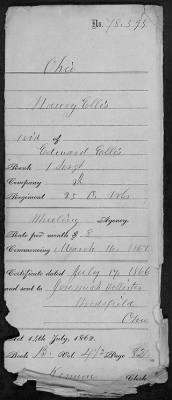 No. 78.595
Ohio
Nancy Ellis
wid of
Edward Ellis
Rank 1 Sergt
Company
Regiment 25 O. Vols
Wheeling Agency.
Rate per month $ 8
Commencing March 16, 1866
Certificate dated July 14, 1866
and sent to Jeremiah
Woodsfield
Ohio
Act 14th July, 1862.
Book Vol. Page
Clerk.